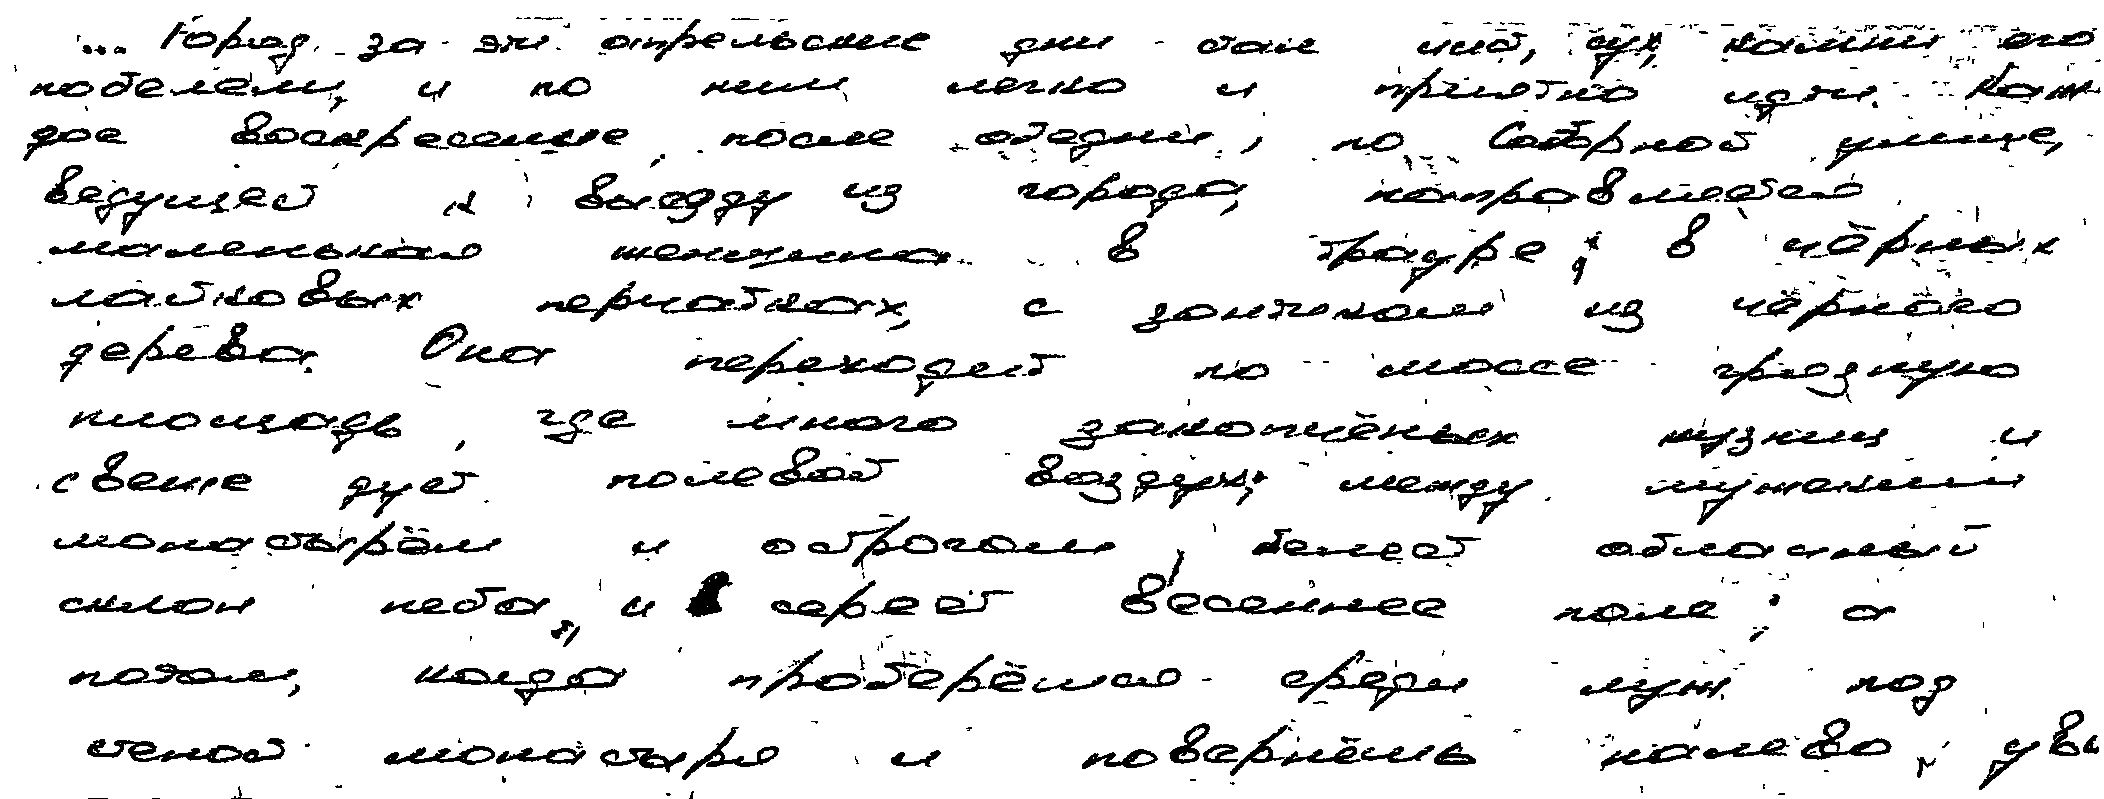 ... Город за эти апрельские дни стал чист, сух, камни его
побелели, и по ним легко и приятно идти. Каж
дое воскресенье, после обедни, по Соборной улице,
ведущей к выезду из города, направляется
маленькая женщина в трауре, в чёрных
лайковых перчатках, с зонтиком из чёрного
дерева. Она переходит по шоссе грязную
площадь, где много закопчёных кузниц и
свеже дует полевой воздух; между мужским
монастырём и острогом, белеет облачный
склон неба, и сереет весеннее поле, а
потом, когда проберёшься среди луж под
стеной монастыря и повернёшь налево, уви